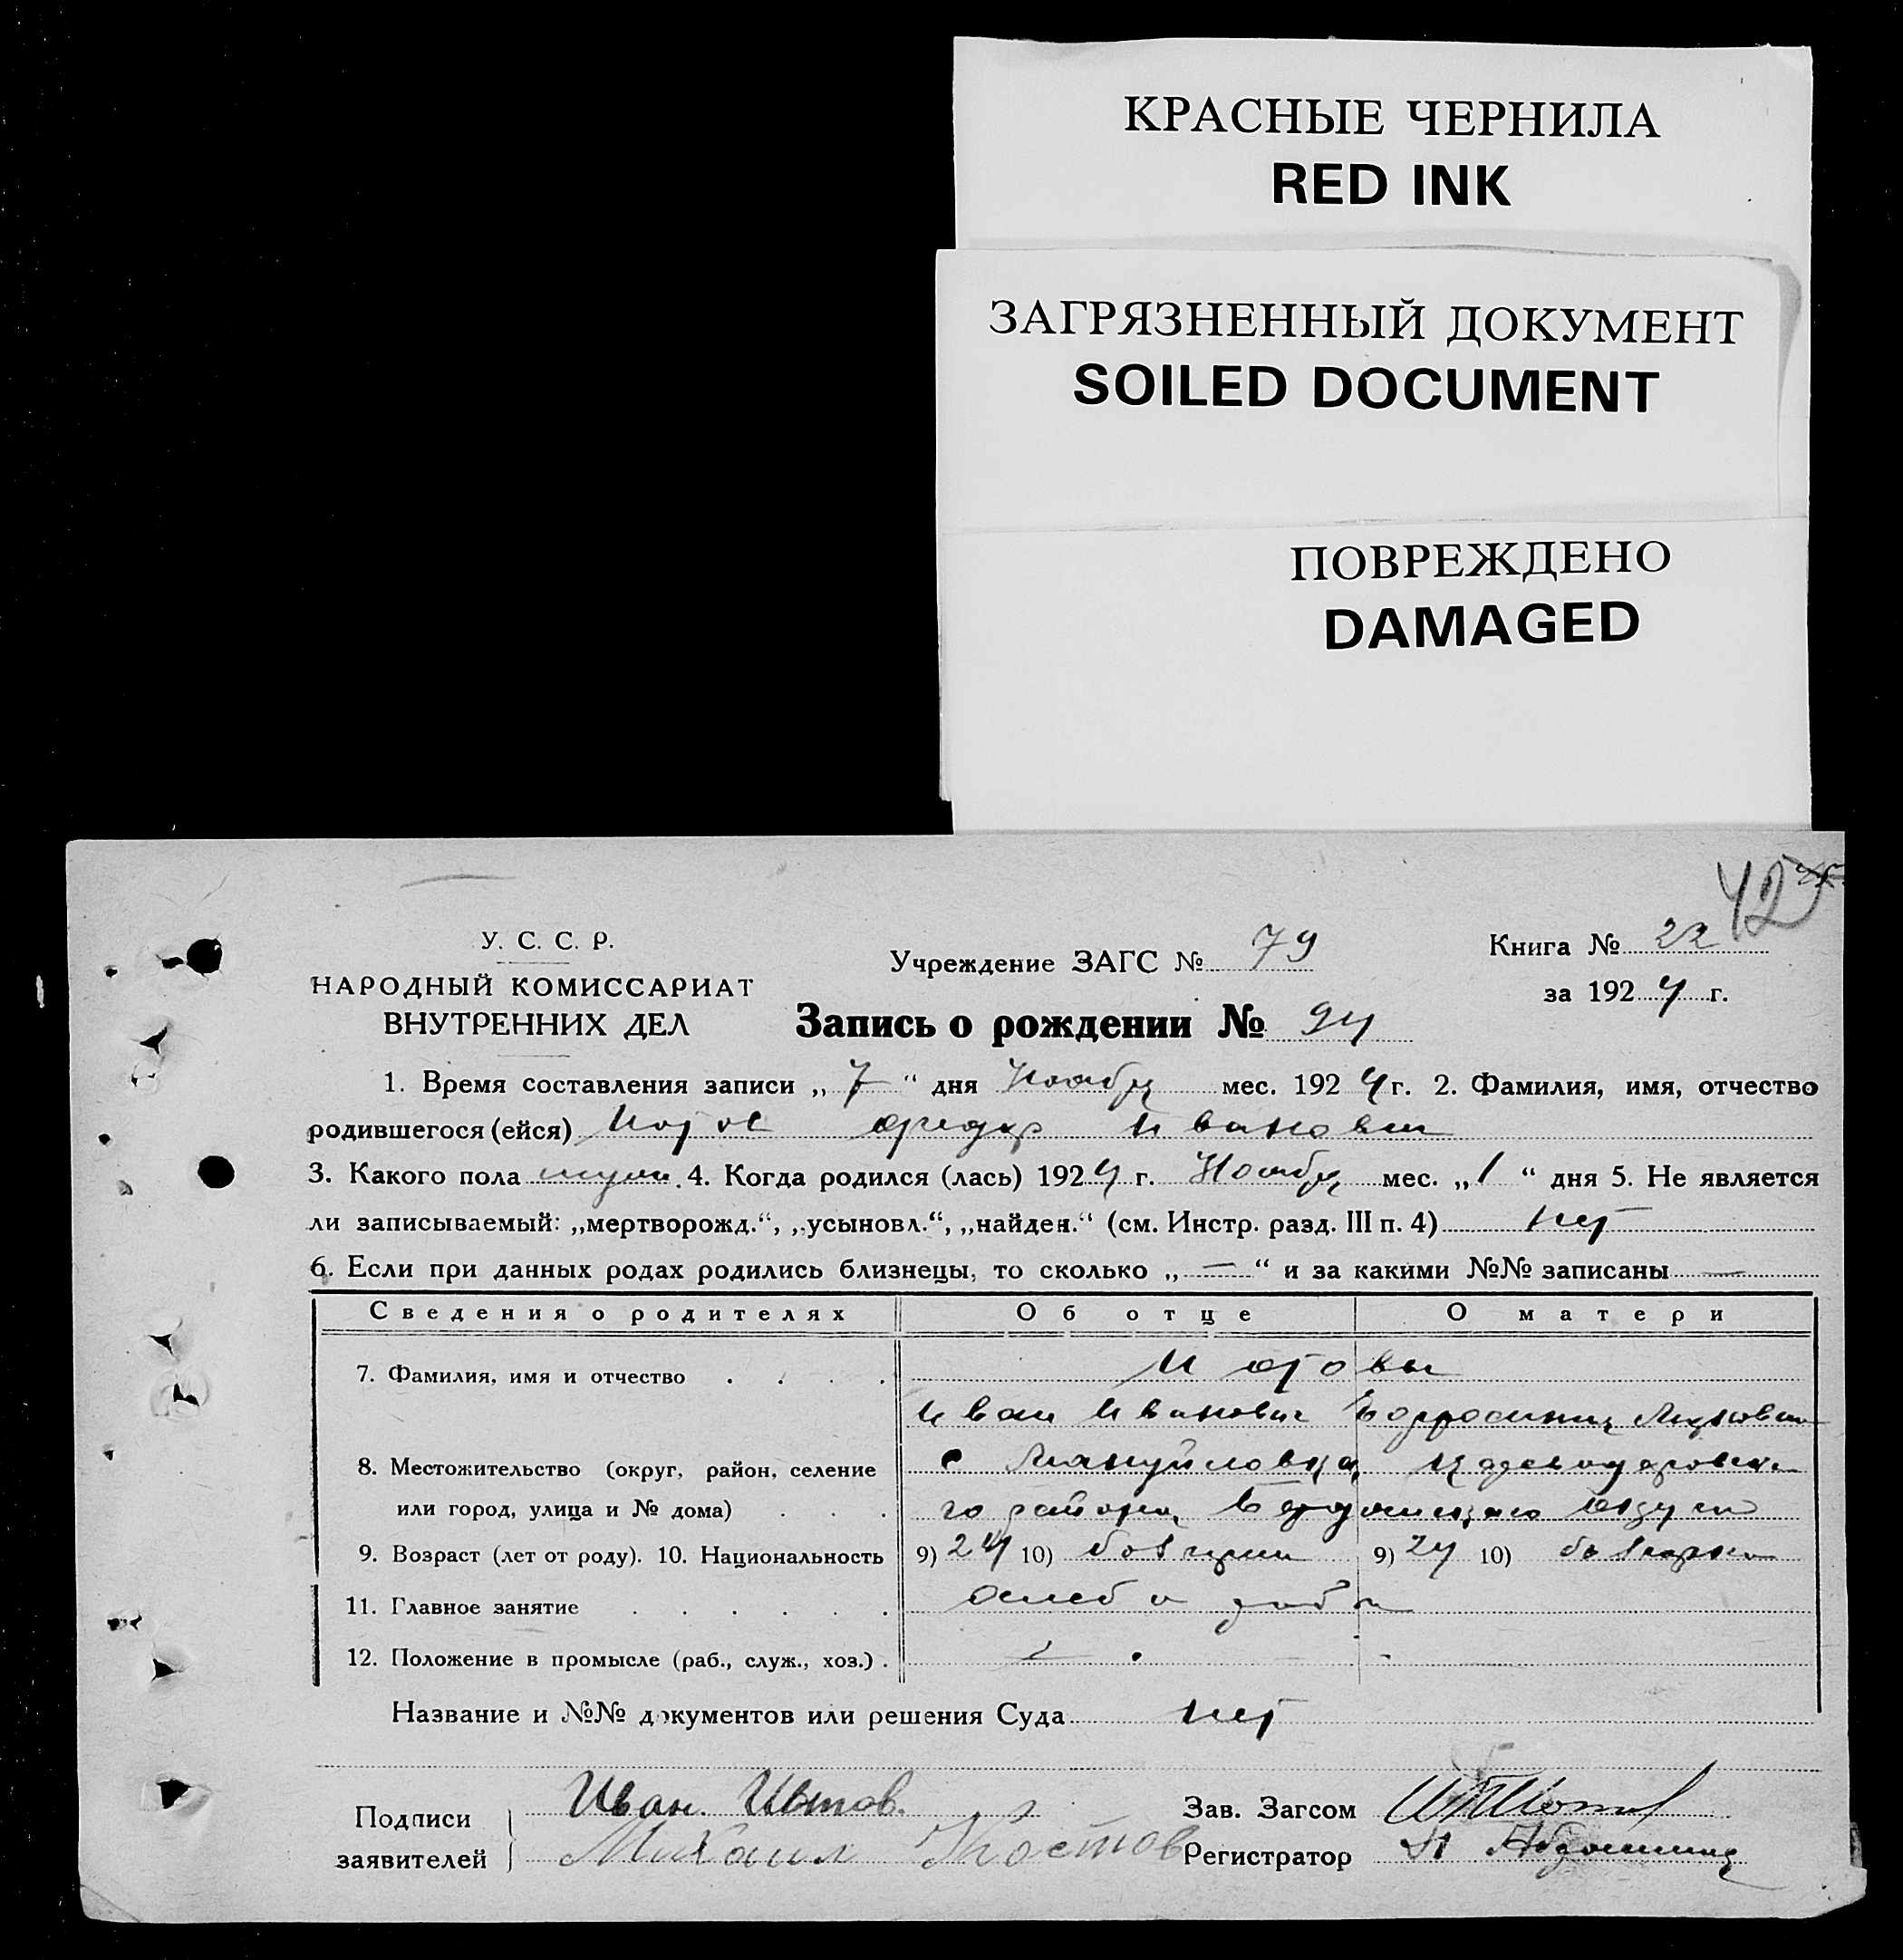 КРАСНЫЕ ЧЕРНИЛА
RED INK
ЗАГРЯЗНЕННЫЙ ДОКУМЕНТ
SOILED DOCUMENT
ПОВРЕЖДЕНО
DAMAGED
42
У. С. С. Р.
НАРОДНЫЙ КОМИССАРИАТ
ВНУТРЕННИХ ДЕЛ
Учреждение ЗАГС № 79
Книга № 22
за 1924 г.
Запись о рождении № 94
1. Время составления записи „7“ дня Ноября мес. 1924 г. 2. Фамилия, имя, отчество
родившегося (ейся) Иванович
3. Какого пола муж. 4. Когда родился (лась) 1924 г. Ноября мес. „1“ дня 5. Не является
ли записываемый: „мертворожд.“, „усыновл.“, „найден.“ (см. Инстр. разд. III п. 4) нет
6. Если при данных родах родились близнецы, то сколько „—“ и за какими №№ записаны —
Сведения о родителях Об отце О матери
7. Фамилия, имя и отчество
Иван Иванович
8. Местожительство (округ, район, селение с Мануйловка
или город, улица и № дома) го района
9. Возраст (лет от роду). 10. Национальность 9) 24 10) болгарин 9) 24 10) болгарка
11. Главное занятие
12. Положение в промысле (раб., служ., хоз.)
Название и №№ документов или решения Суда нет
Подписи
заявителей
Иван
Михаил Костов
Зав. Загсом
Регистратор